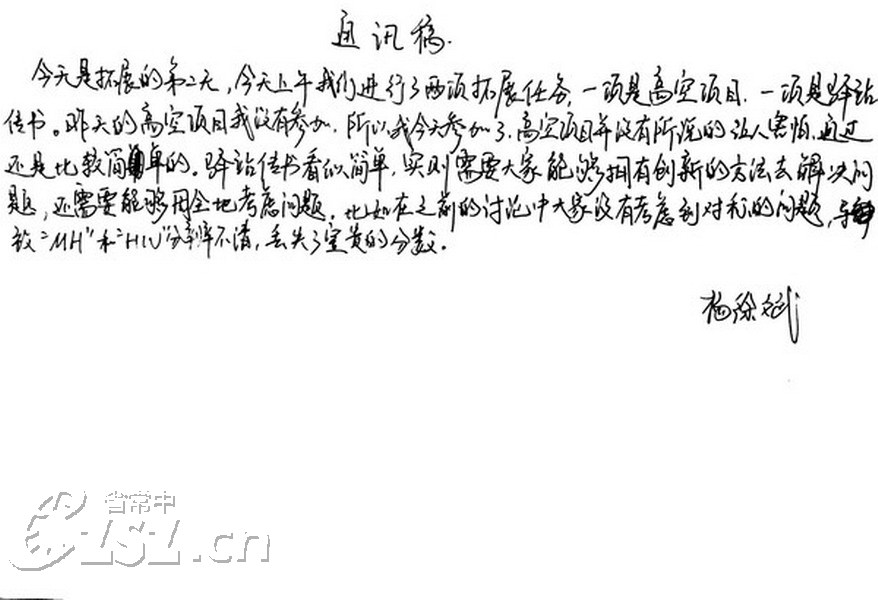 通讯稿.
今天是拓展的第二天，今天上午我们进行了两项拓展任务，一项是高空项目，一项是驿站
传书。昨天的高空项目我没有参加，所以我今天参加了，高空项目并没有所说的让人害怕，通过
还是比较简单的。驿站传书看似简单，实则需要大家能够拥有创新的方法去解决问
题，还需要能够周全地考虑问题，比如在之前的讨论中大家没有考虑到对称的问题，导
致"MH"和"HIV"分辨不清，丢失了宝贵的分数。
杨徐斌
省常中
CZSZ.cn